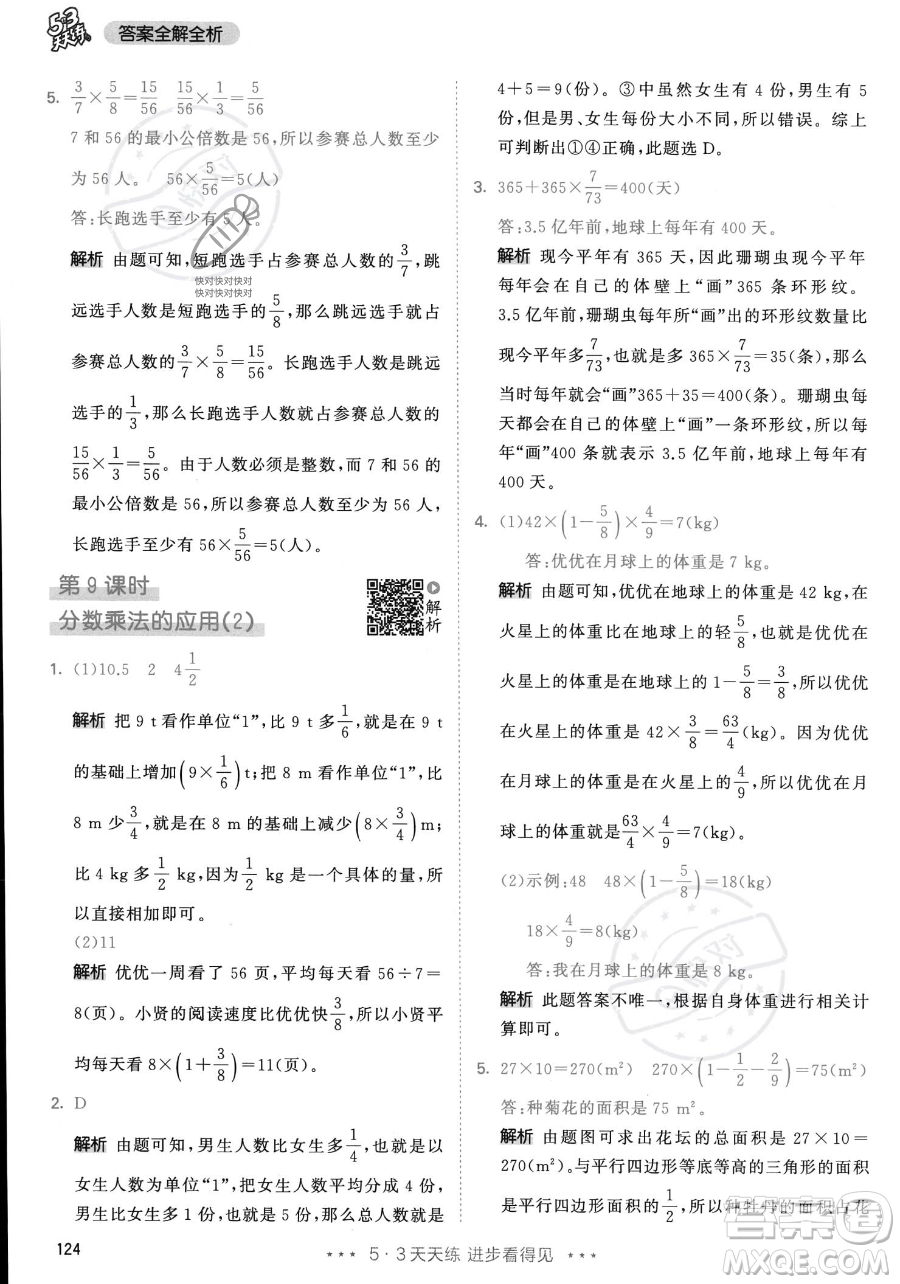 53天天练
答案全解全析
5. 3/7×5/8=15/56  15/56×1/3=5/56
7 和 56 的最小公倍数是 56,所以参赛总人数至少
为 56 人。 56×5/56=5(人)
答:长跑选手至少有 5 人。
解析 由题可知,短跑选手占参赛总人数的3/7,跳
快对快对快对
快对快对快对
远选手人数是短跑选手人数的5/8,那么跳远选手就占
参赛总人数的3/7×5/8=15/56,长跑选手人数是跳远
选手的1/3,那么长跑选手人数就占参赛总人数的
15/56×1/3=5/56。由于人数必须是整数,而 7 和 56 的
最小公倍数是 56,所以参赛总人数至少为 56 人,
长跑选手至少有 56×5/56=5(人)。
第 9 课时
分数乘法的应用(2)
解析
1. (1)10.5 2 4 1/2
解析 把 9 t看作单位“1”,比 9 t 多1/6,就是在 9 t
的基础上增加(9×1/6)t;把 8 m 看作单位“1”,比
8 m 少3/4,就是在 8 m 的基础上减少(8×3/4)m;
比 4 kg 多1/2 kg,就是比 4 kg 多 1/2 kg,所
以直接相加即可。
(2)11
解析 优优一周看了 56 页,平均每天看 56÷7=
8(页)。小贤的阅读速度比优优快3/8,所以小贤平
均每天看 8×(1+3/8)=11(页)。
2. D
解析 由题可知,男生人数比女生多1/4,就是以
女生人数为单位“1”,把女生人数平均分成 4 份,
男生人数比女生多 1 份,那么男生人数就是
4+5=9(份)。③中虽然女生有 4 份,男生有 5
份,但是男、女生每份大小不同,所以错误。综上
可判断出①④正确,此题选 D。
3. 365+365×7/73=400(天)
答:3.5 亿年前,地球上每年有 400 天。
解析 现今平年有 365 天,说明珊瑚虫现今平年
每年在自己的体壁上“画”365 条环形纹。
3.5 亿年前,珊瑚虫每年“画”出的环形纹数量比
现今平年多7/73,所以多 365×7/73=35(条),那么
当时每年就会“画”365+35=400(条)。珊瑚虫每
天都会在自己的体壁上“画”一条环形纹,所以每
年“画”400 条就表示 3.5 亿年前,地球上每年有
400 天。
4. (1)42×(1-5/8)×4/9=7(kg)
答:优优在月球上的体重是 7 kg。
解析 由题可知,优优在地球上的体重是 42 kg,在
火星上的体重比在地球上的轻5/8,也就是优优在
火星上的体重是在地球上的 1-5/8=3/8,所以优优
在火星上的体重是 42×3/8=63/4(kg)。又知道优优
在月球上的体重是在火星上的4/9,所以优优在月
球上的体重就是63/4×4/9=7(kg)。
(2)示例:48 48×(1-5/8)=18(kg)
18×4/9=8(kg)
答:我在月球上的体重是 8 kg。
解析 此题答案不唯一,根据自身体重进行相关计
算即可。
5. 27×10=270(m²) 270×(1-1/2-2/9)=75(m²)
答:种菊花的面积是 75 m²。
解析 由题图可求出花坛的总面积是 27×10=
270(m²),与平行四边形等底等高的三角形的面积
是平行四边形面积的1/2,所以种牡丹的面积占花
124
5·3 天天练 进步看得见